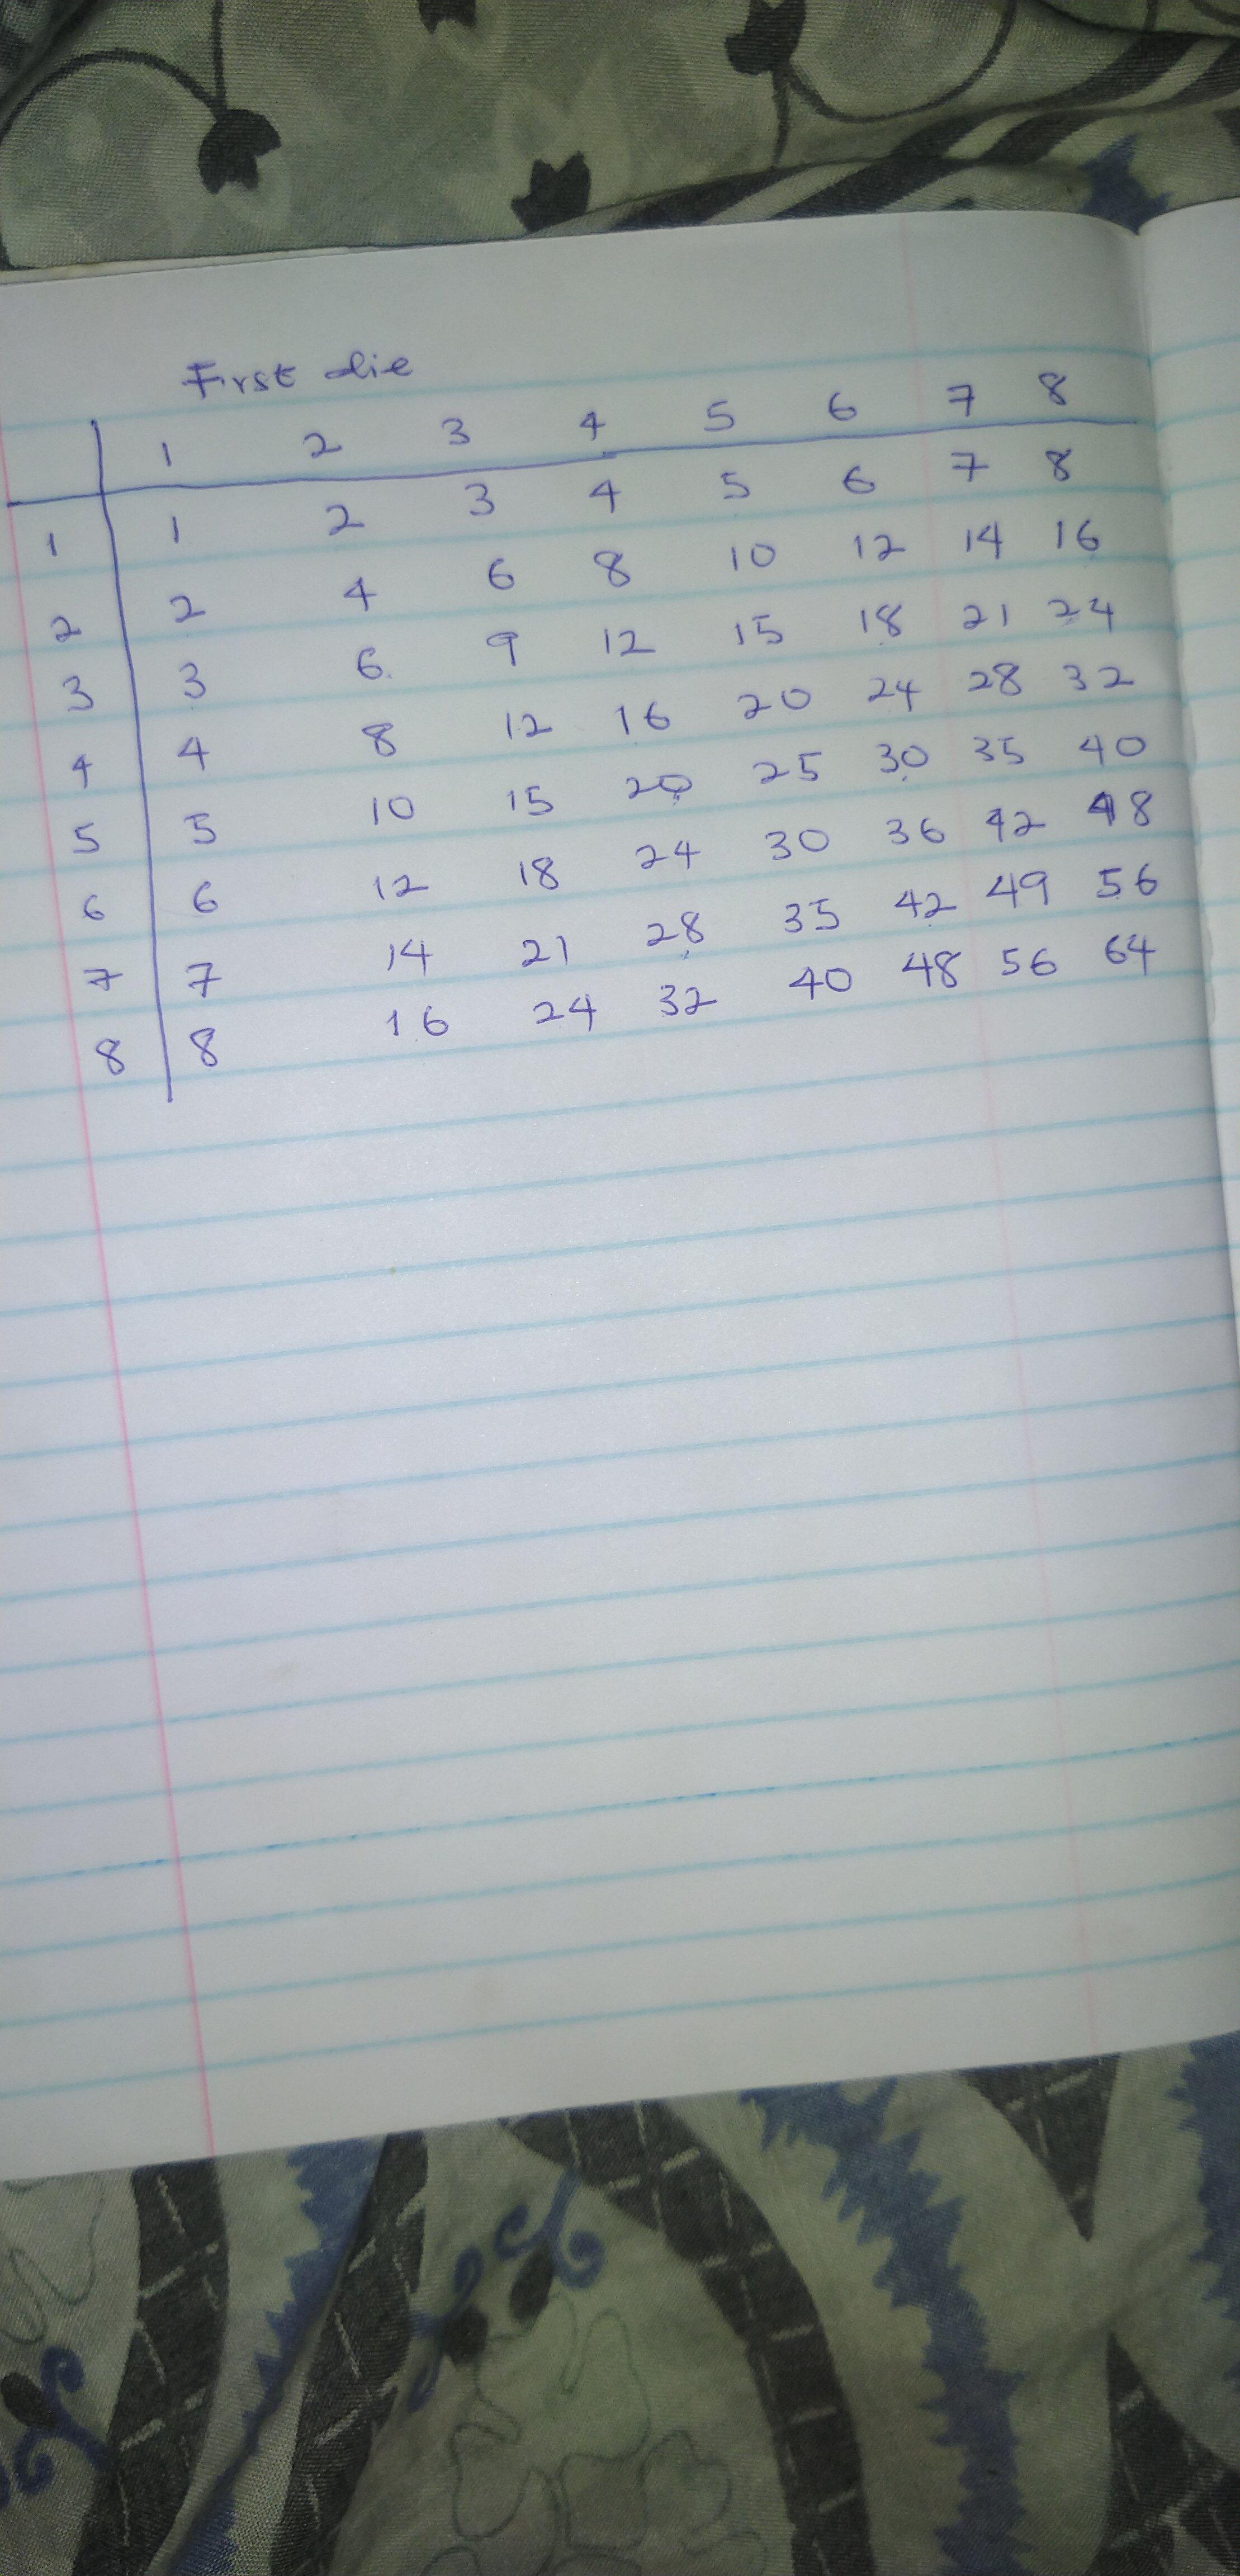 First die
1 2 3 4 5 6 7 8
1 1 2 3 4 5 6 7 8
2 2 4 6 8 10 12 14 16
3 3 6 9 12 15 18 21 24
4 4 8 12 16 20 24 28 32
5 5 10 15 20 25 30 35 40
6 6 12 18 24 30 36 42 48
7 7 14 21 28 35 42 49 56
8 8 16 24 32 40 48 56 64